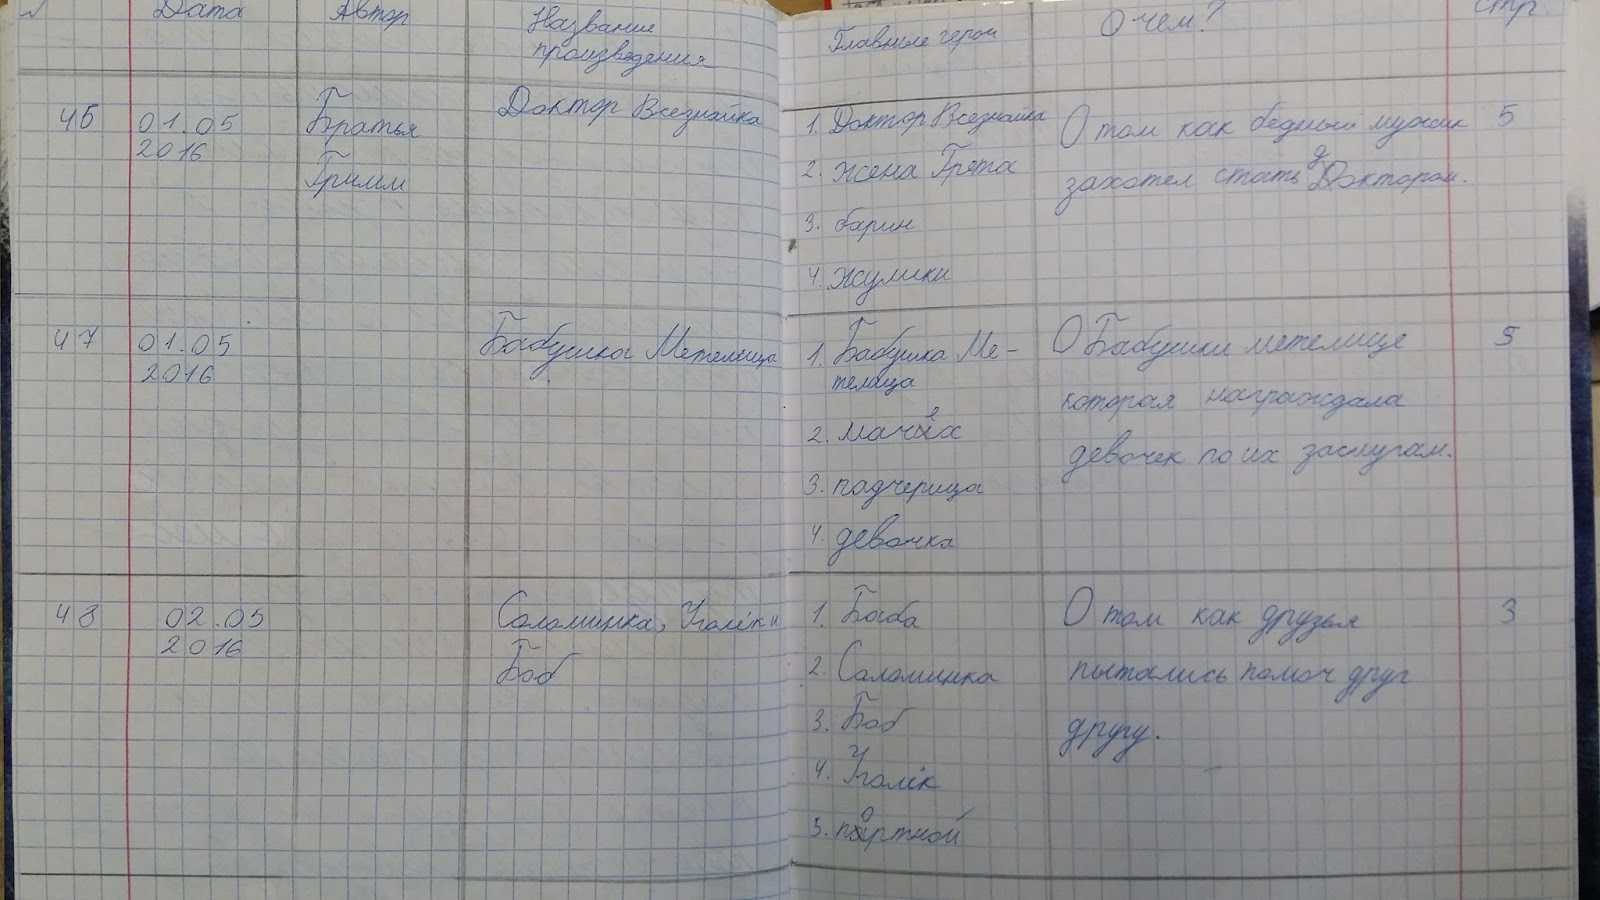 № Дата Автор Название произведения Главные герои О чем? стр.
46 01.05 2016 Братья Гримм Доктор Всезнайка
1. Доктор Всезнайка
2. жена Грета
3. барин
4. жулики
О том как бедный мужик 5
захотел стать Доктором.
47 01.05 2016 Бабушка Метелица
1. Бабушка Ме-
телица
2. мачех
3. падчерица
4. девочка
О Бабушки метелице 5
которая награждала
девочек по их заслугам.
48 02.05 2016 Соломинка, Уголёк и
Боб
1. Баба
2. Соломинка
3. Боб
4. Уголёк
5. портной
О том как друзья 3
пытались помоч друг
другу.